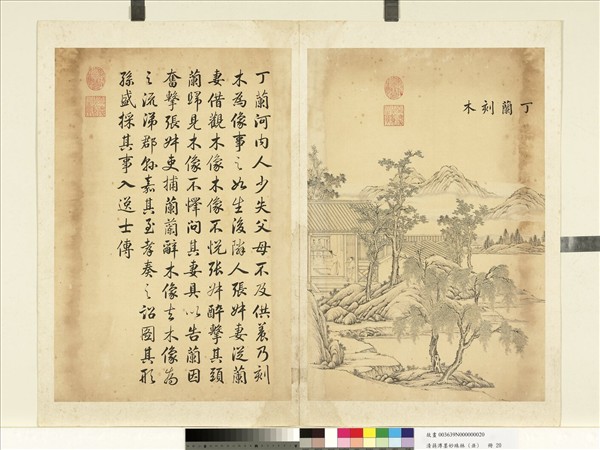 丁蘭刻木
丁蘭河內人少失父母不及供養乃刻
木為像事之如生後隣人張叔妻從蘭
妻借觀木像木像不悅張叔醉擊其頭
蘭歸見木像不懌問其妻具以告蘭因
奮擊張叔吏捕蘭蘭辭木像去木像為
之流涕郡縣嘉其至孝奏之詔圖其形
孫盛採其事入逸士傳
故畫 003639N000000020
清蔣溥墨妙珠林（亥） 冊 20